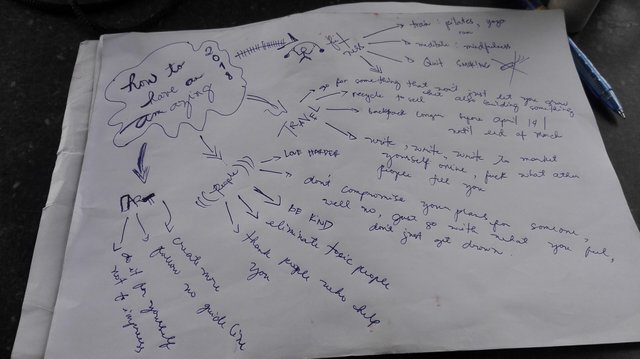 how to
have an
amazing
2018
fit
ness
train: pilates, yoga
run
meditate: mindfulness
Quit smoking
TRAVEL
go for something that won't just let you grow
but also building something
recycle to sell
backpack before April 14 |
until end of March
write, write, write to market
yourself online, fuck what other
people tell you
People
LOVE HARDER
don't compromise your plans for someone,
well no, just go with what you feel,
don't just get drown.
BE KIND
eliminate toxic people
thank people who help
you
ART
create more
follow no guide line
do it for yourself
not to impress